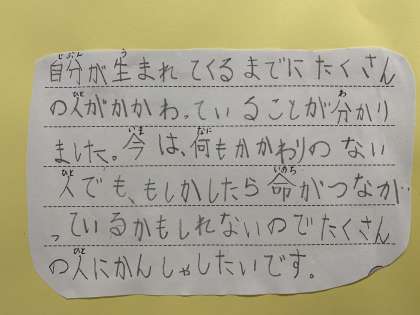 自分が生まれてくるまでにたくさん
の人がかかわっていることが分かり
ました。今は、何もかかわりのない
人でも、もしかしたら命がつなが
っているかもしれないのでたくさん
の人にかんしゃしたいです。